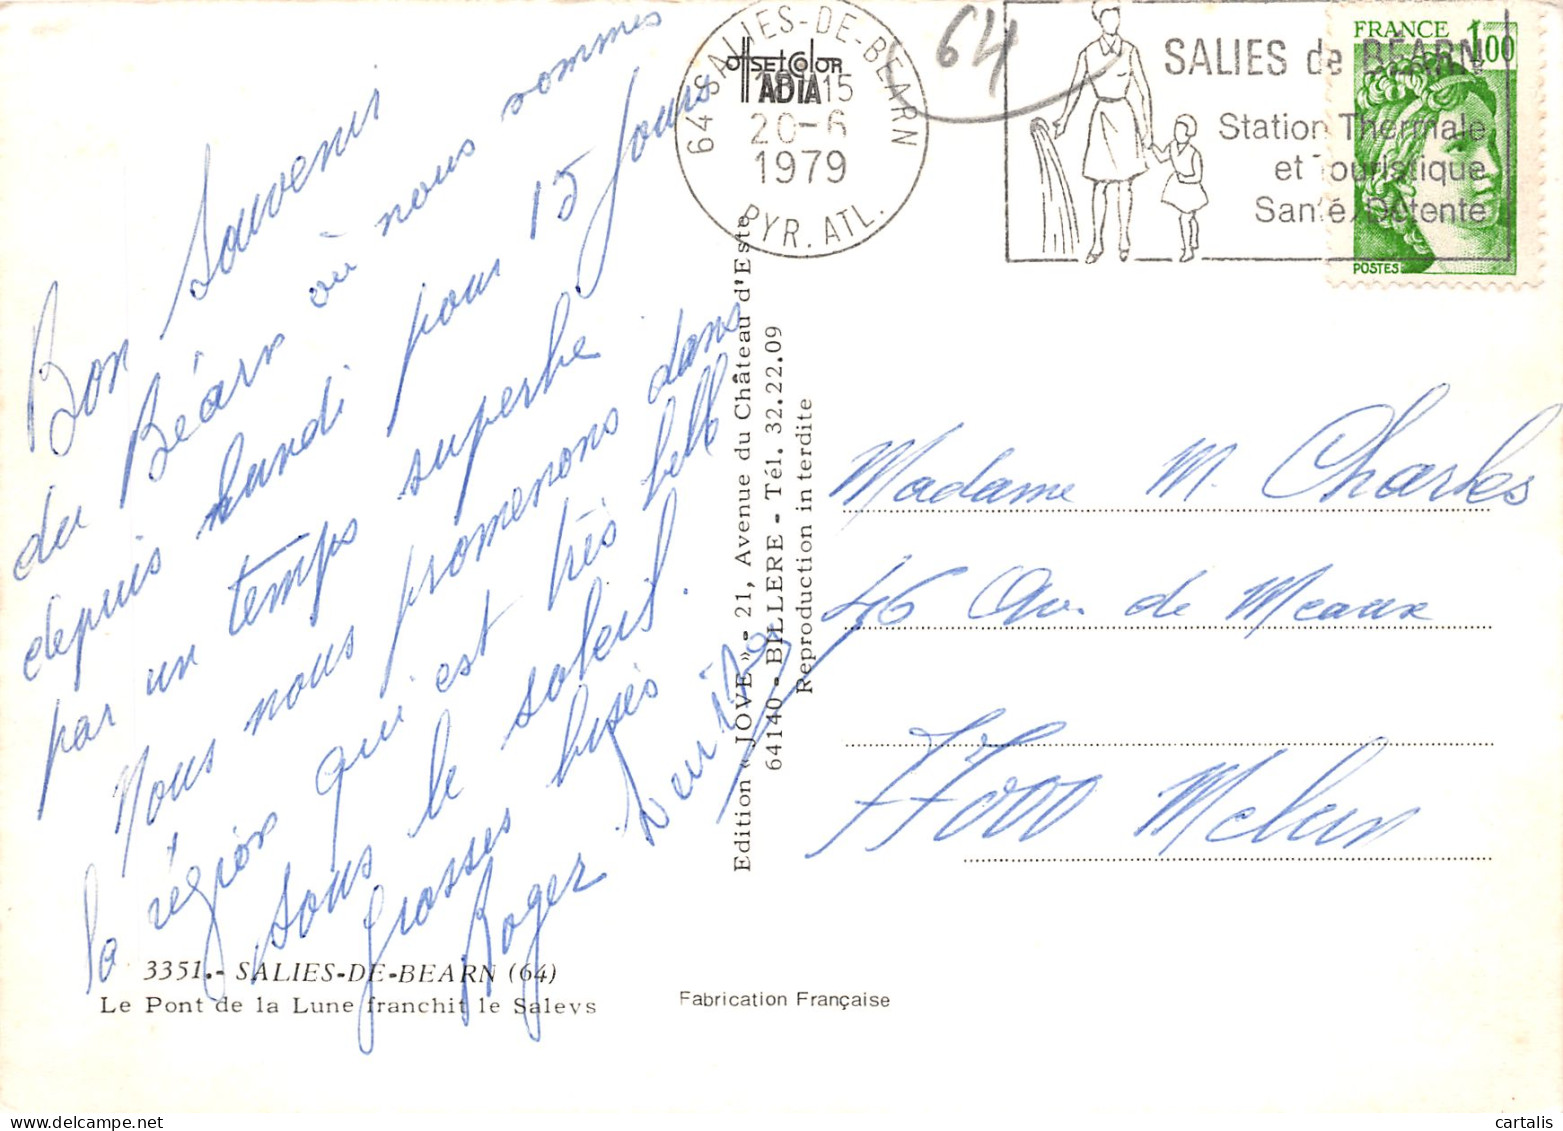 Bon Souvenir
du Béarn où nous sommes
depuis lundi pour 15 jours
par un temps superbe
Nous nous promenons dans
la région qui est très belle
sous le soleil.
Grosses bises
Roger
3351.- SALIES-DE-BEARN (64)
Le Pont de la Lune franchit le Saleys
Fabrication Française
Edition « JOVE » - 21, Avenue du Château d'Este
64140 - BILLERE - Tél. 32.22.09
Reproduction interdite
OffsetColor
ADIA
64 SALIES-DE-BEARN
15
20-6
1979
PYR. ATL.
64
SALIES de BÉARN
Station Thermale
et Touristique
Santé/Détente
FRANCE 1,00
POSTES
Madame M. Charles
46 Av. de Meaux
77000 Melun